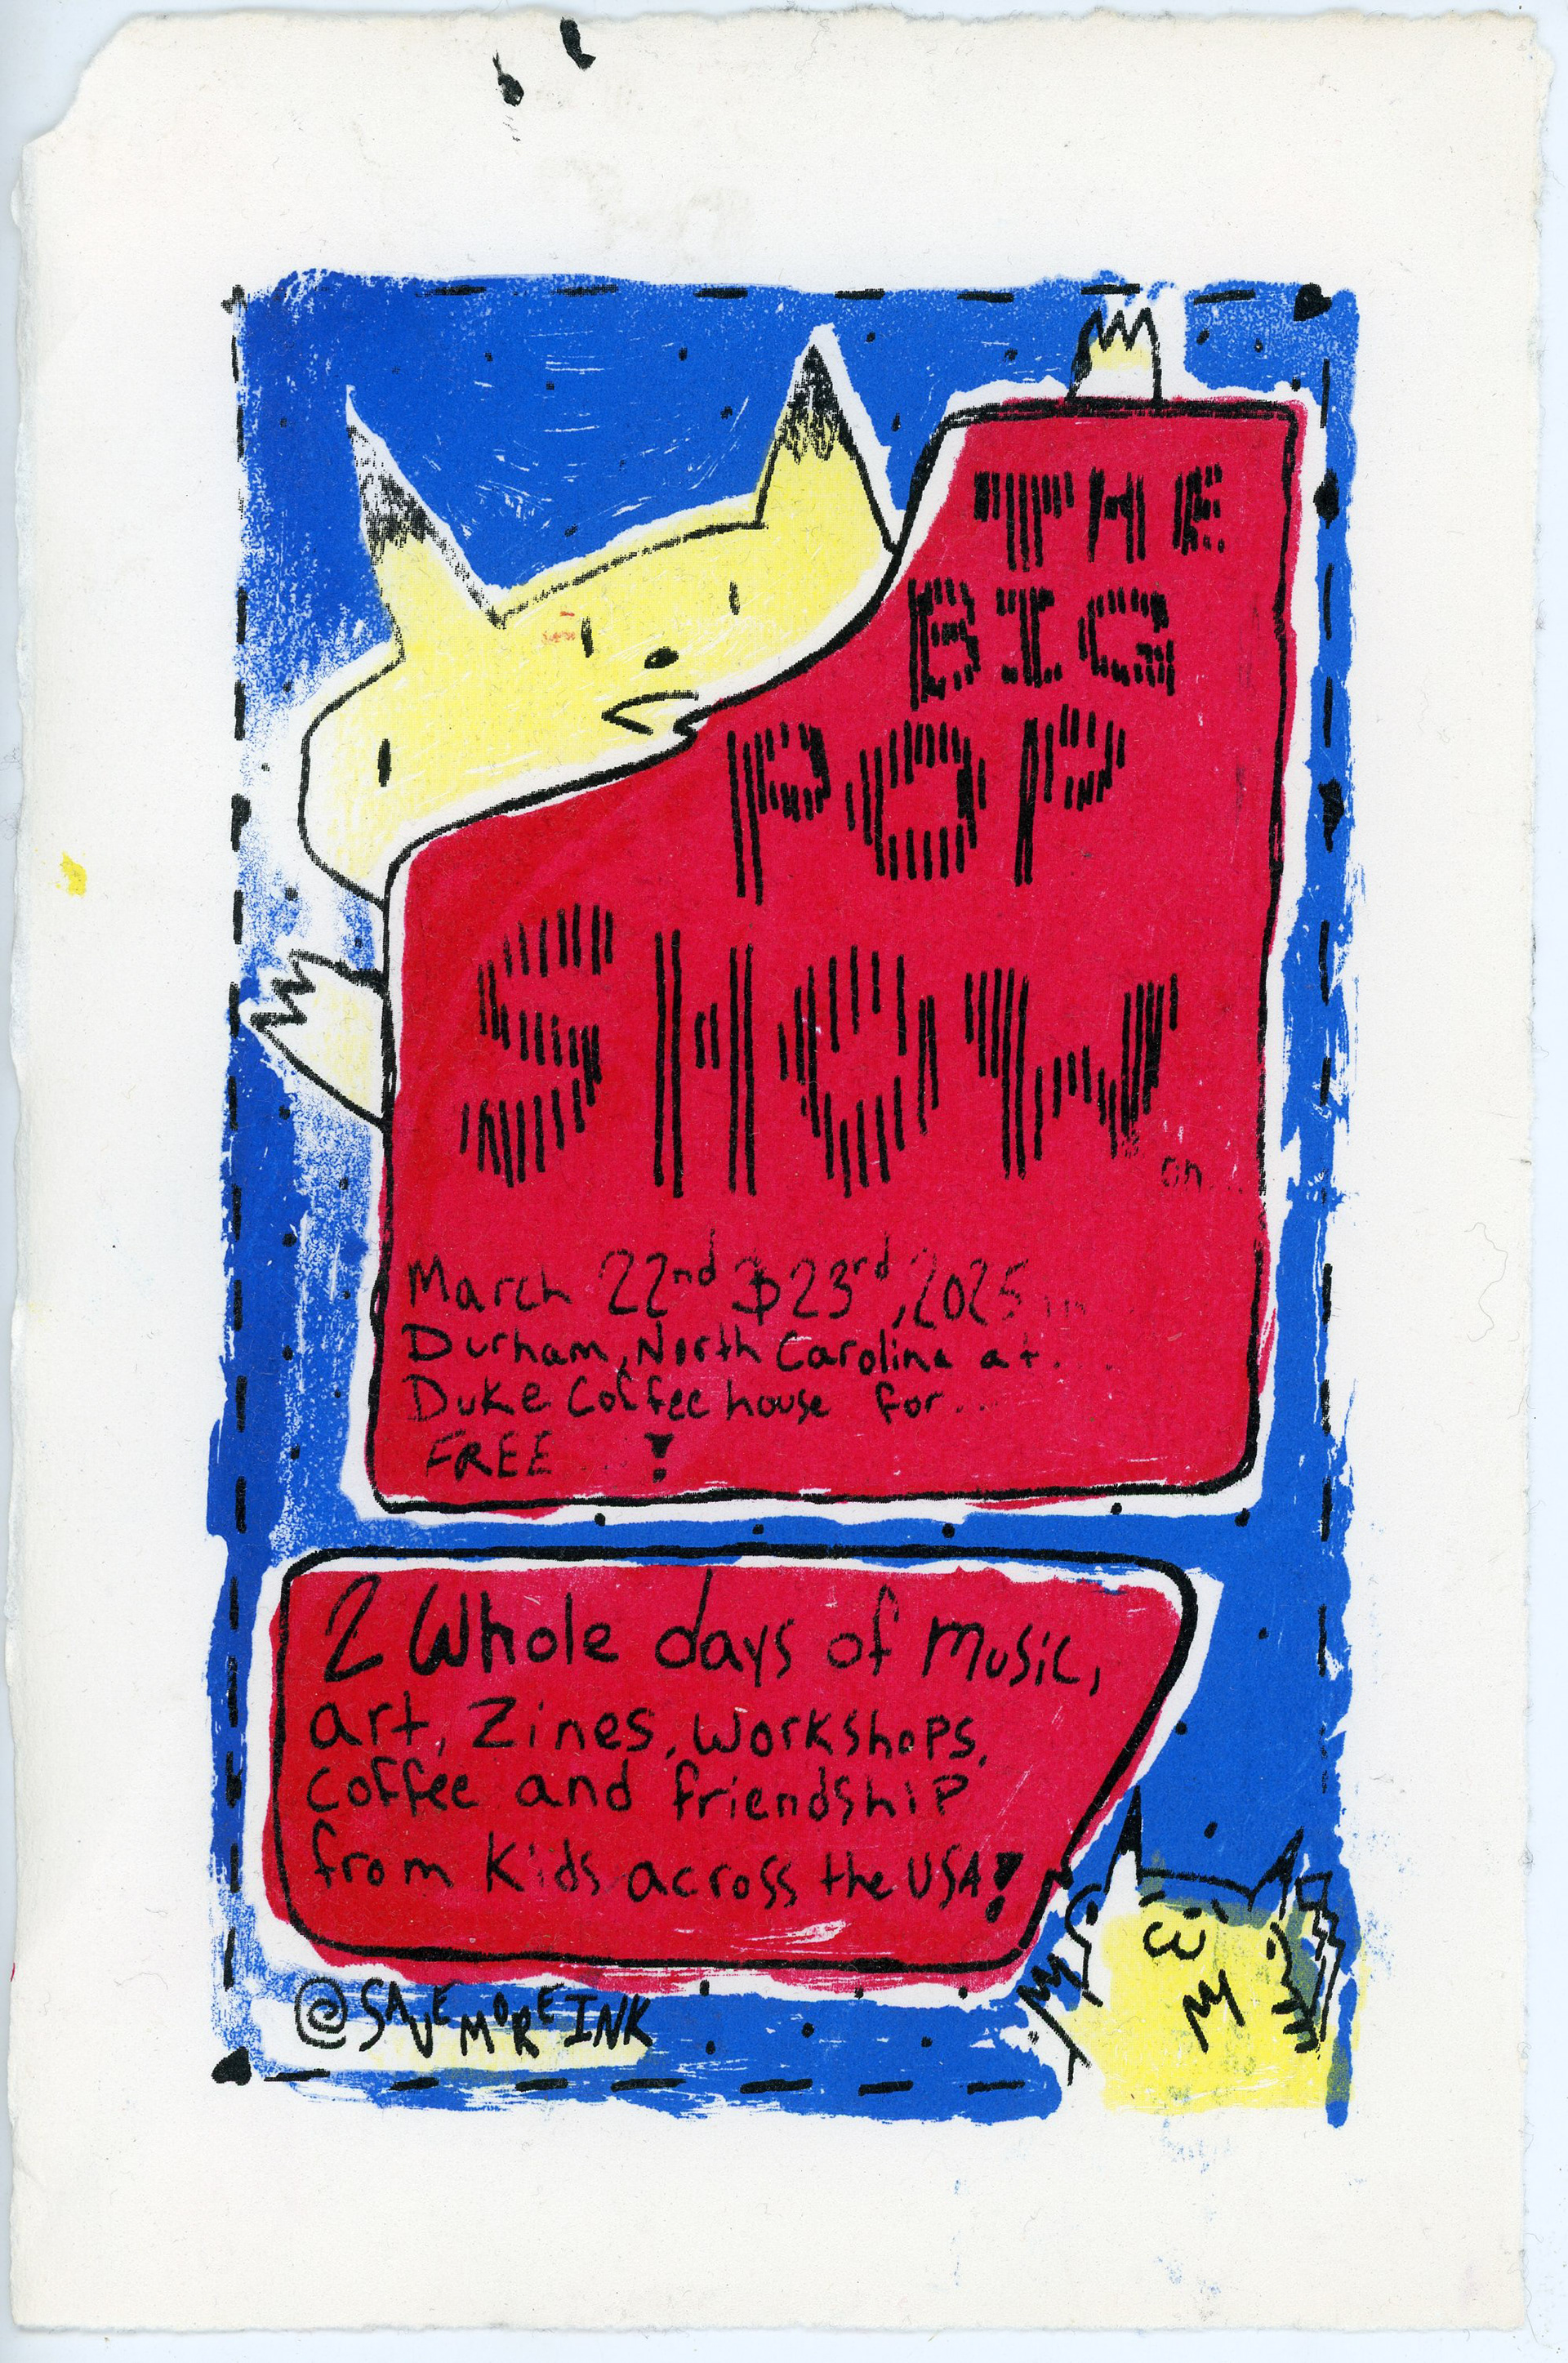 THE
BIG
POP
SHOW
on...
March 22nd & 23rd, 2025 in
Durham, North Carolina at...
Duke Coffee house for...
FREE !
2 Whole days of music,
art, zines, workshops,
coffee and friendship
from kids across the USA!
@SAVEMOREINK